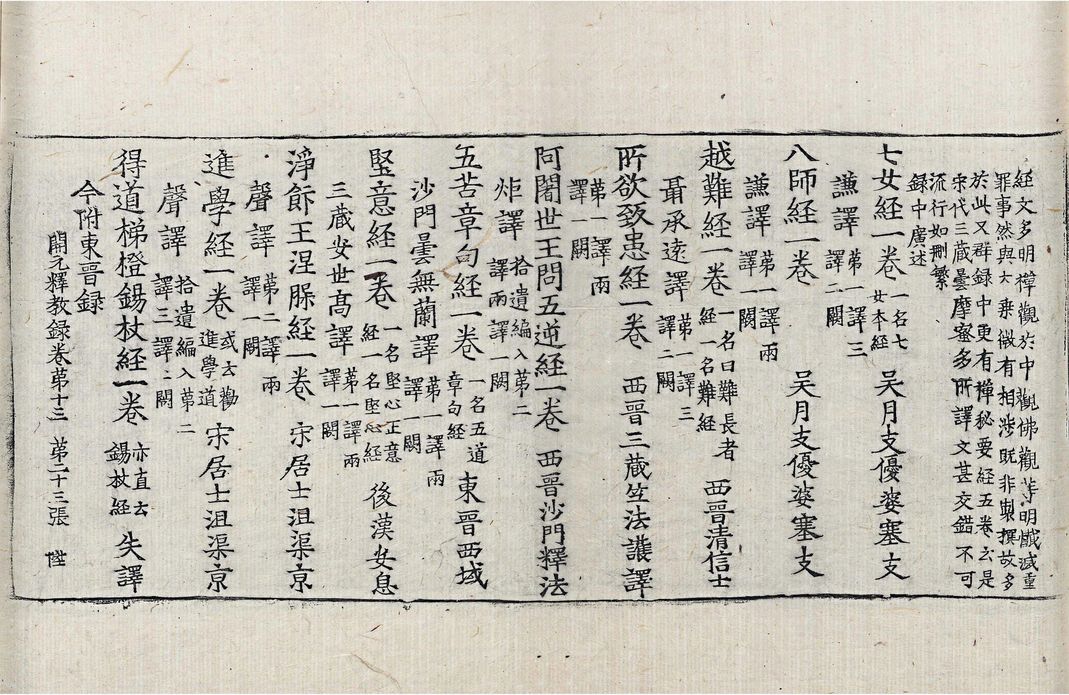 經文多明禪觀於中觀佛觀等明懺滅重
罪事然與大乗微有相渉既非製撰故多
於此又群録中更有禪秘要経五卷云是
宋代三藏曇摩蜜多所譯文甚交錯不可
流行如刪繁
録中廣述
七女経一卷 一名七女本経 吴月支優婆塞支
謙譯 第一譯三譯二闕
八師経一卷 吴月支優婆塞支
謙譯 第一譯兩譯一闕
越難経一卷 一名曰難長者経一名難経 西晉清信士
聶承遠譯 第一譯三譯二闕
所欲致患経一卷 西晉三藏竺法護譯
第一譯兩譯一闕
阿闍世王問五逆経一卷 西晉沙門釋法
炬譯 拾遺編入第二譯兩譯一闕
五苦章句経一卷 一名五道章句経 東晉西域
沙門曇無蘭譯 第一譯兩譯一闕
堅意経一卷 一名堅心正意経一名堅心経 後漢安息
三藏安世髙譯 第一譯兩譯一闕
淨飯王涅脲経一卷 宋居士沮渠亰
聲譯 第二譯兩譯一闕
進學経一卷 或云勸進學道 宋居士沮渠亰
聲譯 拾遺編入第二譯三譯二闕
得道梯橙錫杖経一卷 亦直云錫杖経 失譯
今附東晉録
開元釋教録卷第十三 第二十三張 陞